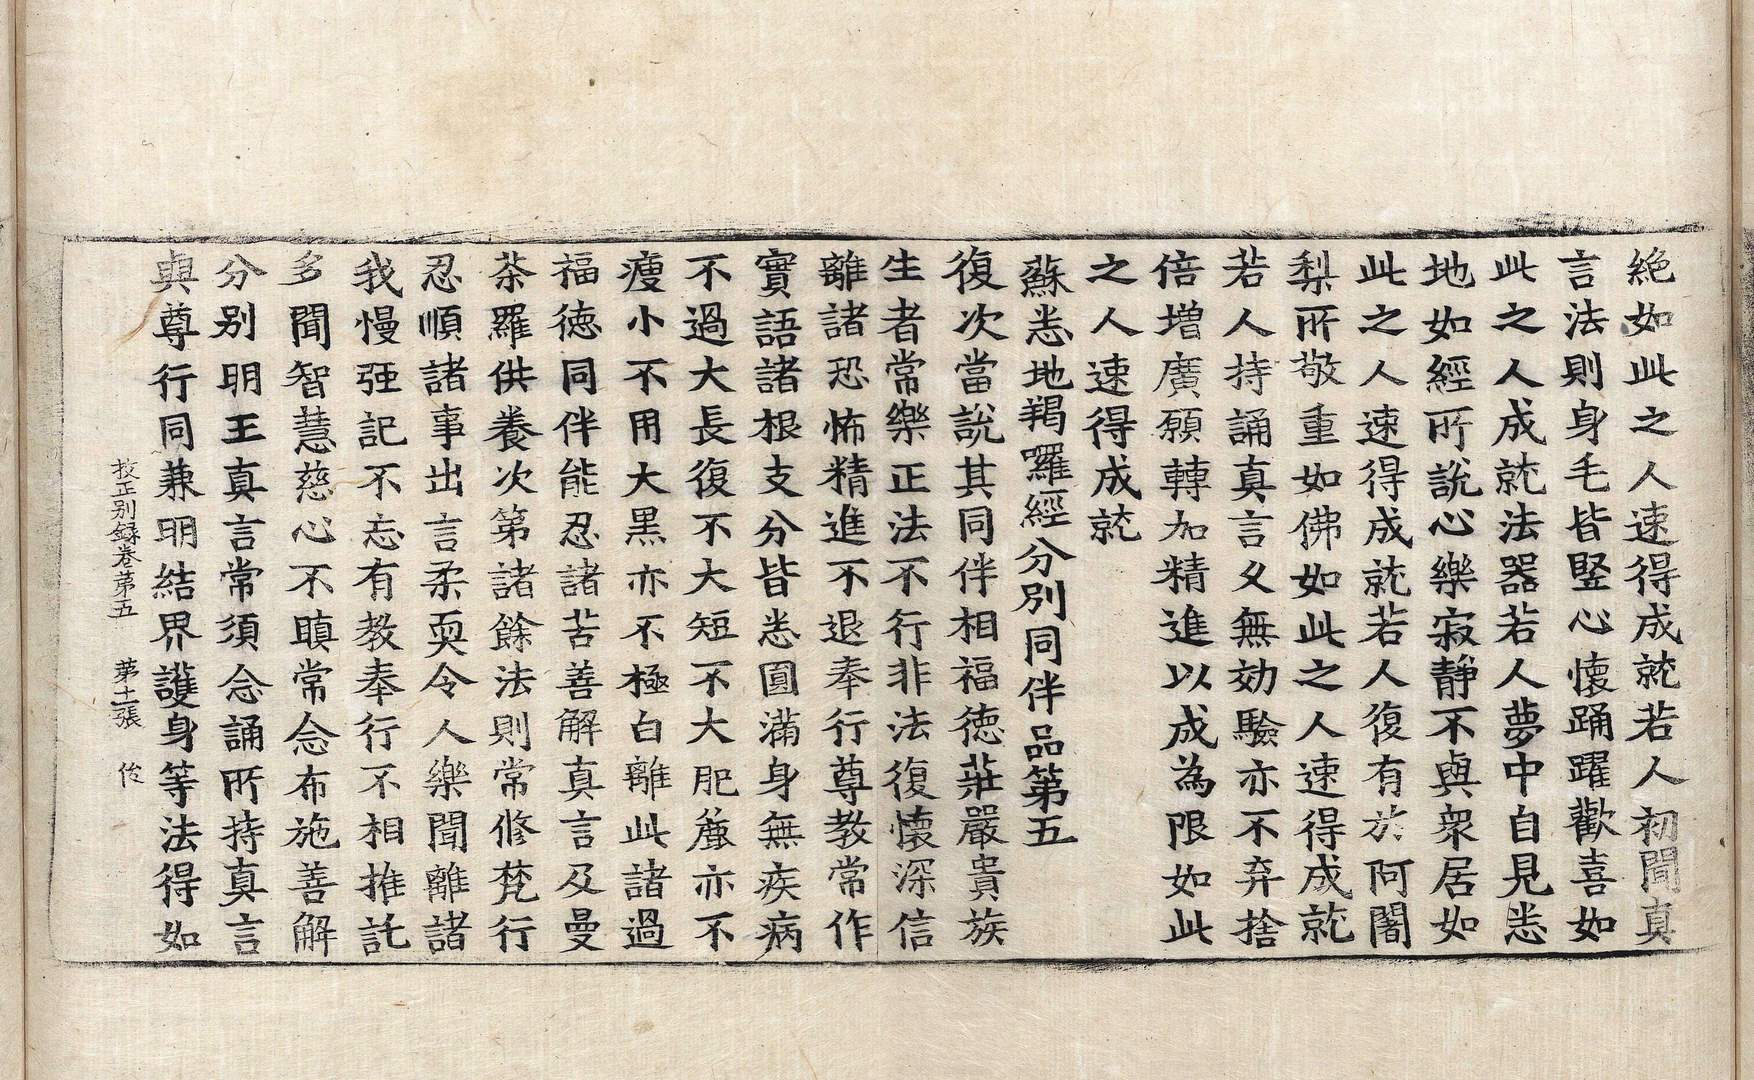 絶如此之人速得成就若人初聞真
言法則身毛皆竪心懷踊躍歡喜如
此之人成就法器若人夢中自見悉
地如經所說心樂寂靜不與衆居如
此之人速得成就若人復有於阿闍
梨所敬重如佛如此之人速得成就
若人持誦真言久無効驗亦不弃捨
倍增廣願轉加精進以成為限如此
之人速得成就
蘇悉地羯囉經分別同伴品第五
復次當說其同伴相福德莊嚴貴族
生者常樂正法不行非法復懷深信
離諸恐怖精進不退奉行尊教常作
實語諸根支分皆悉圓滿身無疾病
不過大長復不大短不大肥麄亦不
瘦小不用大黒亦不極白離此諸過
福德同伴能忍諸苦善解真言及曼
茶羅供養次第諸餘法則常修梵行
忍順諸事出言柔耎令人樂聞離諸
我慢强記不忘有教奉行不相推託
多聞智慧慈心不瞋常念布施善解
分別明王真言常須念誦所持真言
與尊行同兼明結界護身等法得如
校正別録卷第五 第十一張 俊